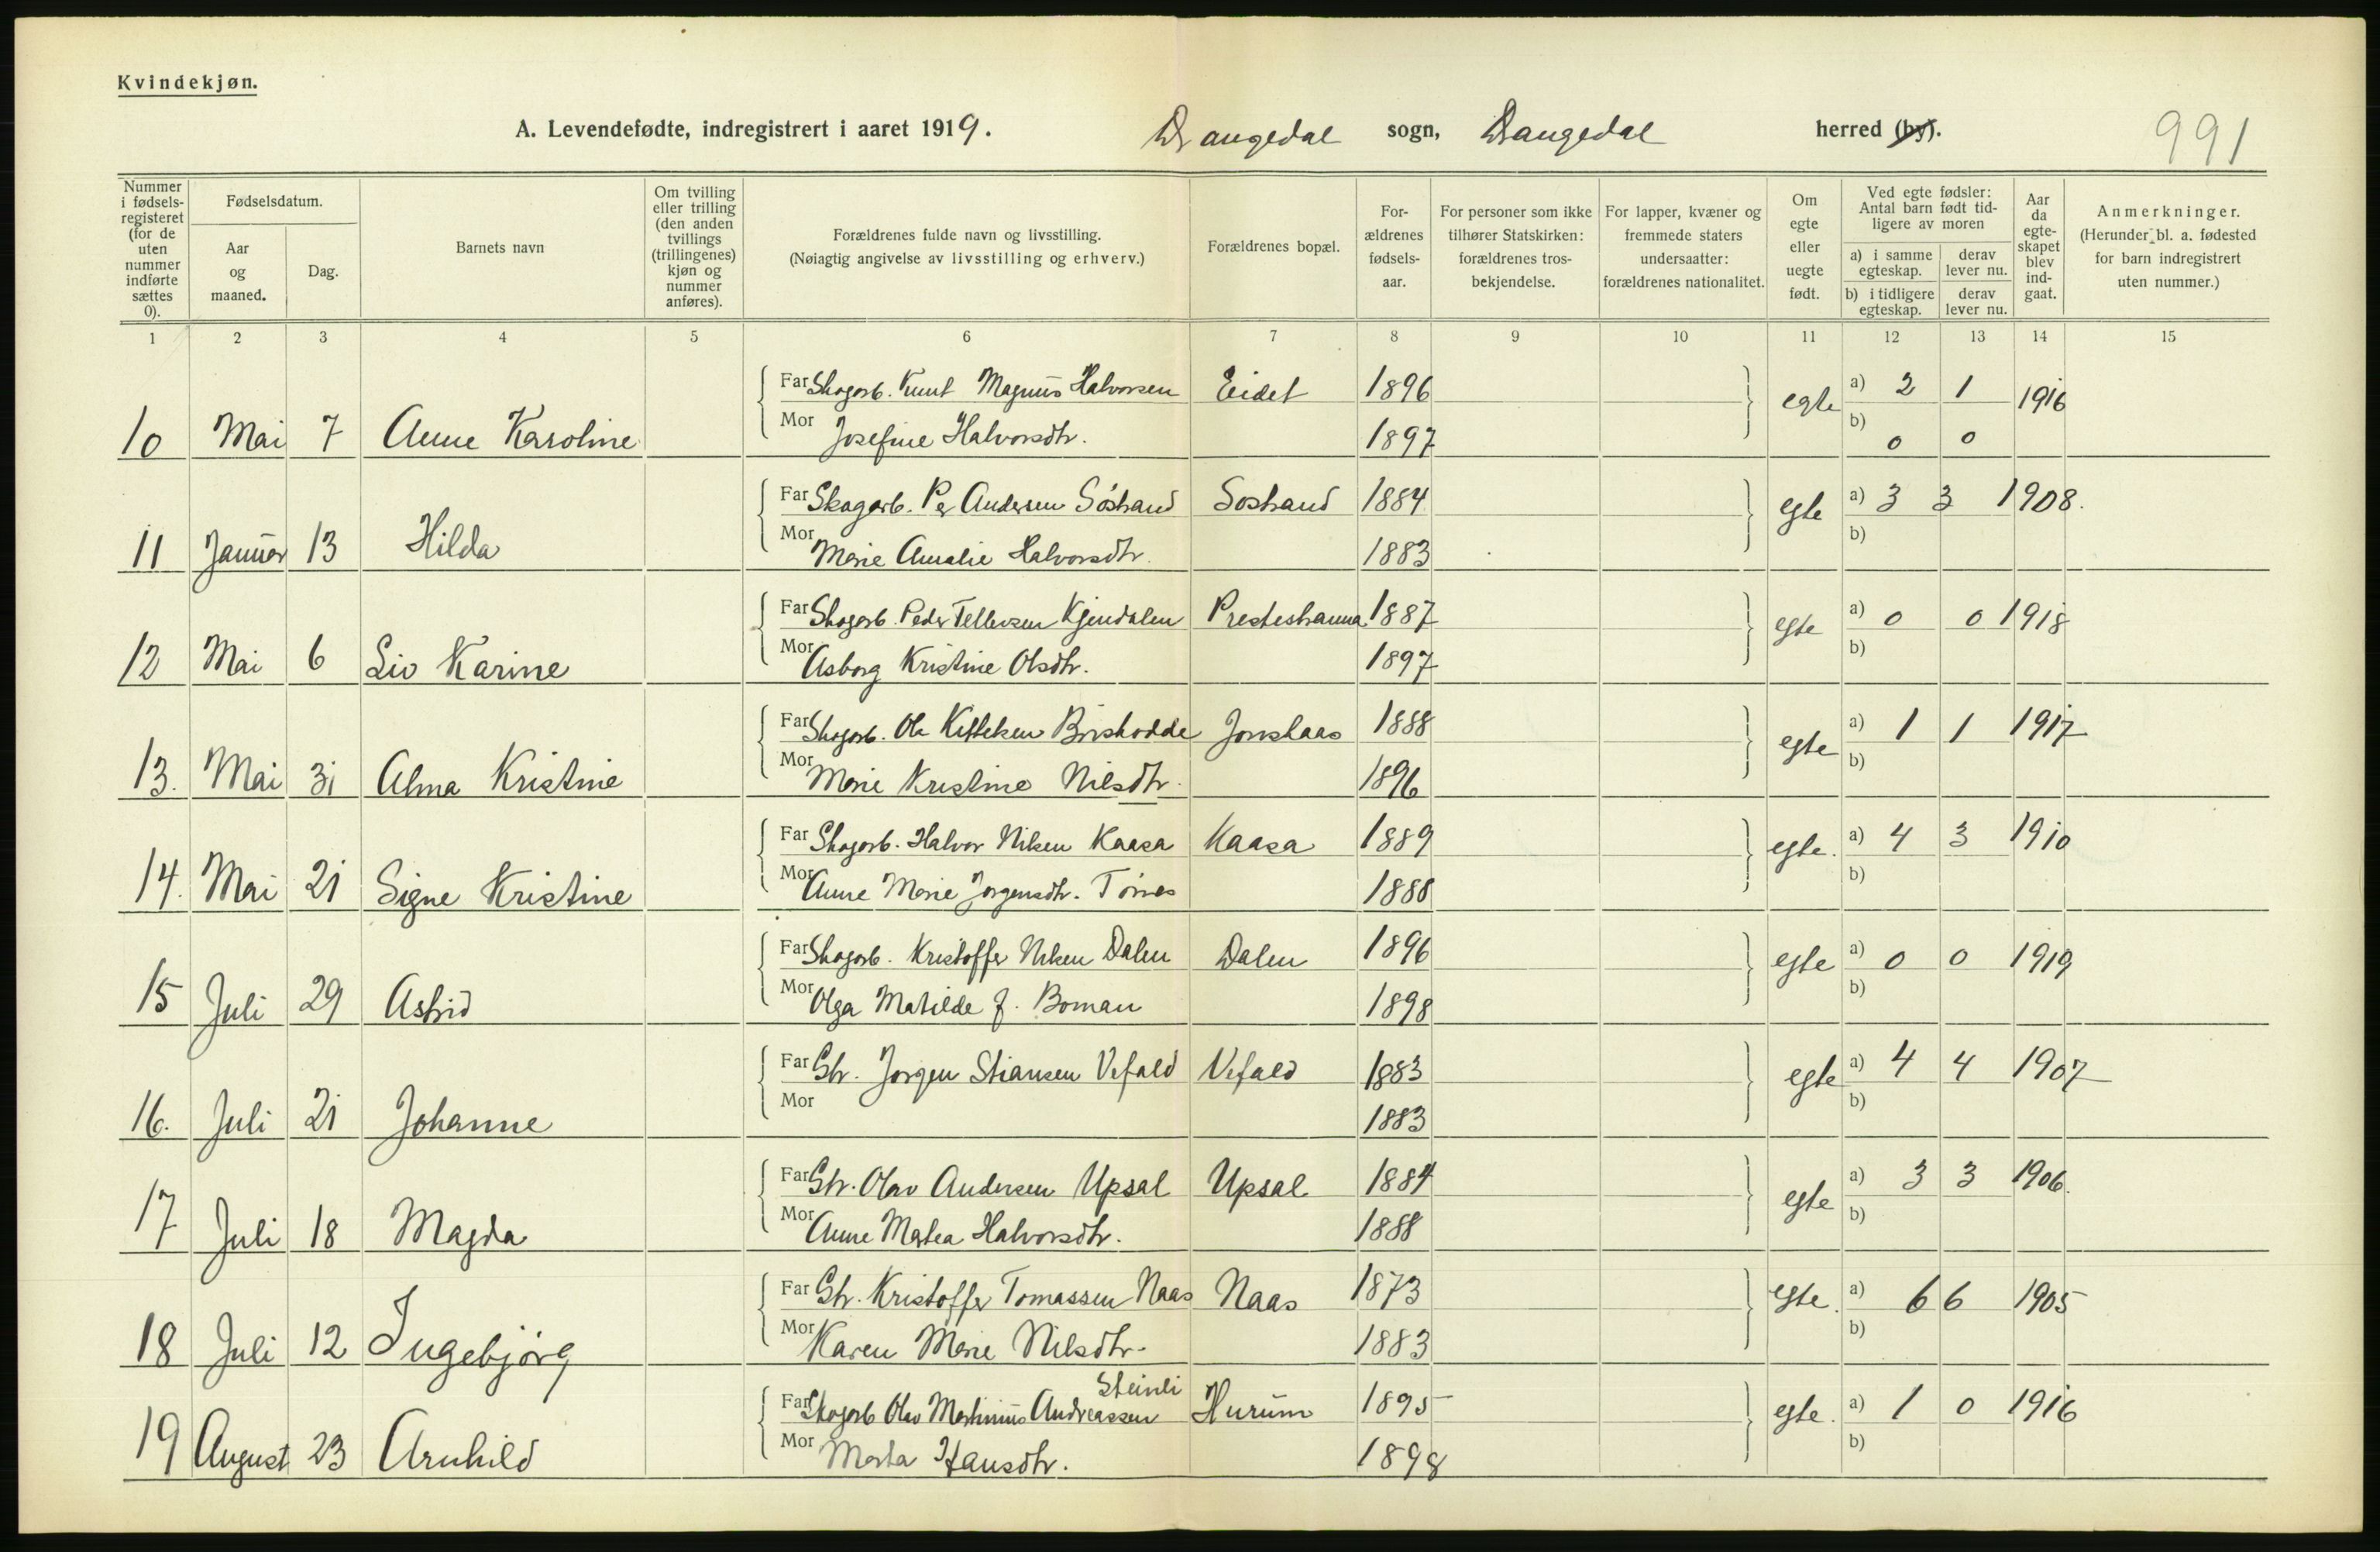 Kvindekjøn.
A. Levendefødte, indregistrert i aaret 1919. Drangedal sogn, Drangedal herred (by). 991
Nummer i fødsels-registeret (for de uten nummer indførte sættes 0).
Fødselsdatum.
Aar og maaned.
Dag.
Barnets navn
Om tvilling eller trilling (den anden tvillings (trillingenes) kjøn og nummer anføres).
Forældrenes fulde navn og livsstilling.
(Nøiagtig angivelse av livsstilling og erhverv.)
Forældrenes bopæl.
For-ældrenes fødsels-aar.
For personer som ikke tilhører Statskirken: forældrenes tros-bekjendelse.
For lapper, kvæner og fremmede staters undersaatter: forældrenes nationalitet.
Om egte eller uegte født.
Ved egte fødsler: Antal barn født tid-ligere av moren
a) i samme egteskap.
derav lever nu.
b) i tidligere egteskap.
derav lever nu.
Aar da egte-skapet blev ind-gaat.
Anmerkninger.
(Herunder bl. a. fødested for barn indregistrert uten nummer.)
1 2 3 4 5 6 7 8 9 10 11 12 13 14 15
Far Skogarb. Knut Magnus Halvorsen Eidet 1896 egte a) 2 1 1916
10 Mai 7 Anne Karoline Mor Josefine Halvorsdtr. 1897 b) 0 0
Far Skogarb. Per Andersen Söstrand Sostrand 1884 egte a) 3 3 1908.
11 Januar 13 Hilda Mor Marie Amalie Halvorsdtr. 1883 b)
Far Skogarb. Peder Tellevsen Kjendalen 1887 egte a) 0 0 1918
12 Mai 6 Liv Karine Mor Asborg Kristine Olsdtr. 1897 b)
Far Skogarb. Ole Kittelsen 1888 egte a) 1 1 1917
13. Mai 31 Alma Kristine Mor Marie Kristine Nilsdtr. 1896 b)
Far Skogarb. Halvor Nilsen Kaasa Kaasa 1889 egte. a) 4 3 1910
14. Mai 21 Signe Kristine Mor Anne Marie Jorgensdtr. 1888 b)
Far Skogarb. Kristoffer Nilsen Dalen Dalen 1896 egte a) 0 0 1919
15 Juli 29 Astrid Mor Olga Matilde J. Boman 1898 b)
Far Gbr. Jorgen Stiansen Vefald Vefald 1883 egte a) 4 4 1907
16. Juli 21 Johanne Mor 1883 b)
Far Gbr. Olav Andersen Upsal Upsal 1884 egte a) 3 3 1906.
17 Juli 18 Magda Mor Anne Martea Halvorsdtr. 1888 b)
Far Gbr. Kristoffer Tomassen Naas Naas 1873 egte. a) 6 6 1905
18 Juli 12 Ingebjörg Mor Karen Marie Nilsdtr. 1883 b)
Steinli
Far Skogarb Olav Martinius Andreassen Hurum 1895 egte. a) 1 0 1916
19 August 23 Arnhild Mor Marta Hansdtr. 1898 b)